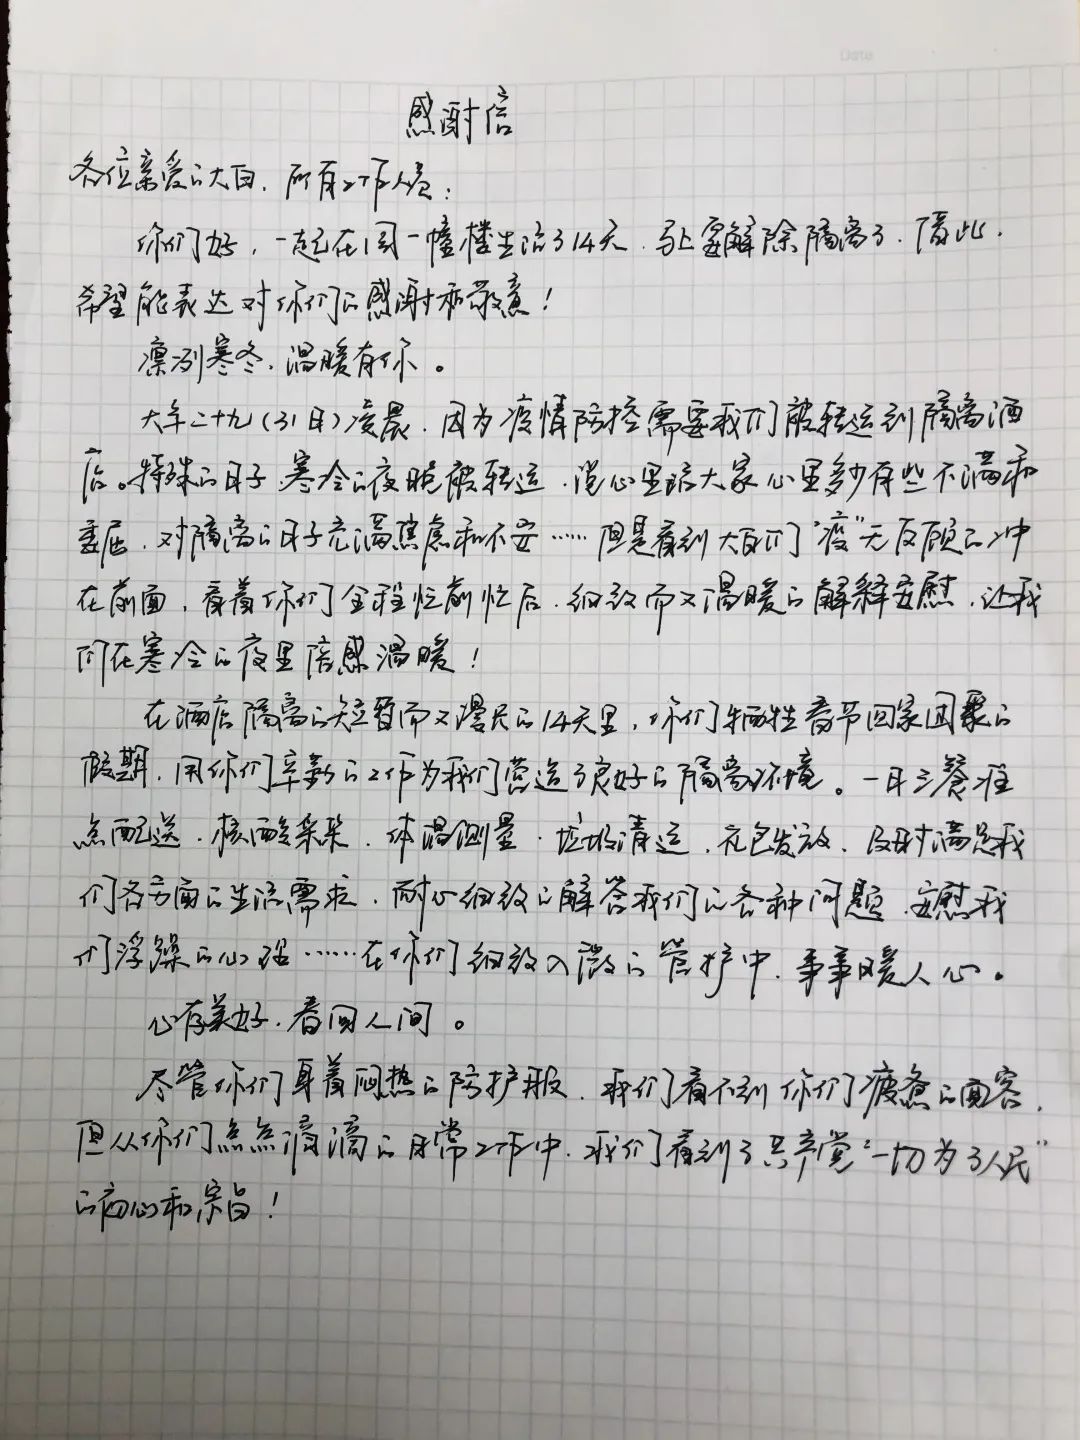 Date
感谢信
各位亲爱的大白、所有工作人员:
你们好,一起在同一幢楼生活了14天,马上要解除隔离了,借此,
希望能表达对你们的感谢和敬意!
凛冽寒冬,温暖有你。
大年二十九(31日)凌晨,因为疫情防控需要我们被转运到隔离酒
店。特殊的日子,寒冷的夜晚被转运,说心里话大家心里多少有些不满和
委屈,对隔离的日子充满焦虑和不安……但是看到大白们“疫”无反顾的冲
在前面,看着你们全程忙前忙后,细致而又温暖的解释安慰,让我
们在寒冷的夜里倍感温暖!
在酒店隔离的短暂而又漫长的14天里,你们牺牲春节回家团聚的
假期,用你们辛勤的工作为我们营造了良好的隔离环境。一日三餐准
点配送,核酸采集,体温测量,垃圾清运,礼包发放,及时满足我
们各方面的生活需求,耐心细致的解答我们的各种问题,安慰我
们浮躁的心理……在你们细致入微的管护中,事事暖人心。
心存美好,春回人间。
尽管你们身着闷热的防护服,我们看不到你们疲惫的面容,
但从你们点点滴滴的日常工作中,我们看到了共产党“一切为了人民”
的初心和宗旨!